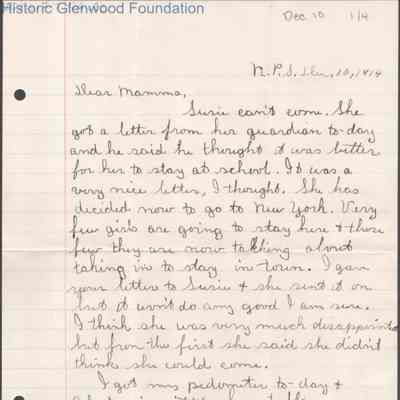 Historic Glenwood Foundation
Dec 10 1/4
N.P.S. Dec, 10, 1914
Dear Mamma,
Susie can't come. She
got a letter from her guardian to-day
and he said he thought it was better
for her to stay at school. It was a
very nice letter, I thought. She has
decided now to go to New York. Very
few girls are going to stay here & those
few they are now talking about
taking in to stay in town. I gave
your letter to Susie & she sent it on
but it won't do any good I am sure.
I think she was very much disappointed
but from the first she said she didn't
think she would come.
I got my pedometer to-day &